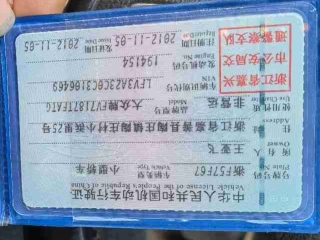 中华人民共和国机动车行驶证
Vehicle License of the People's Republic of China
号牌号码 浙F57F67 车辆类型 小型轿车
Plate No. Vehicle Type
所有人 王亚飞
Owner
住址 浙江省嘉善县陶庄镇陶中村 25号
Address
使用性质 非营运 品牌型号 大众牌FV7187TFATG
Use Character Model
浙江省嘉兴
市公安局交
通警察支队
车辆识别代号 LFV3A23C0C3106469
VIN
发动机号码 194154
Engine No.
注册日期 2012-11-05 发证日期 2012-11-05
Register Date Issue Date